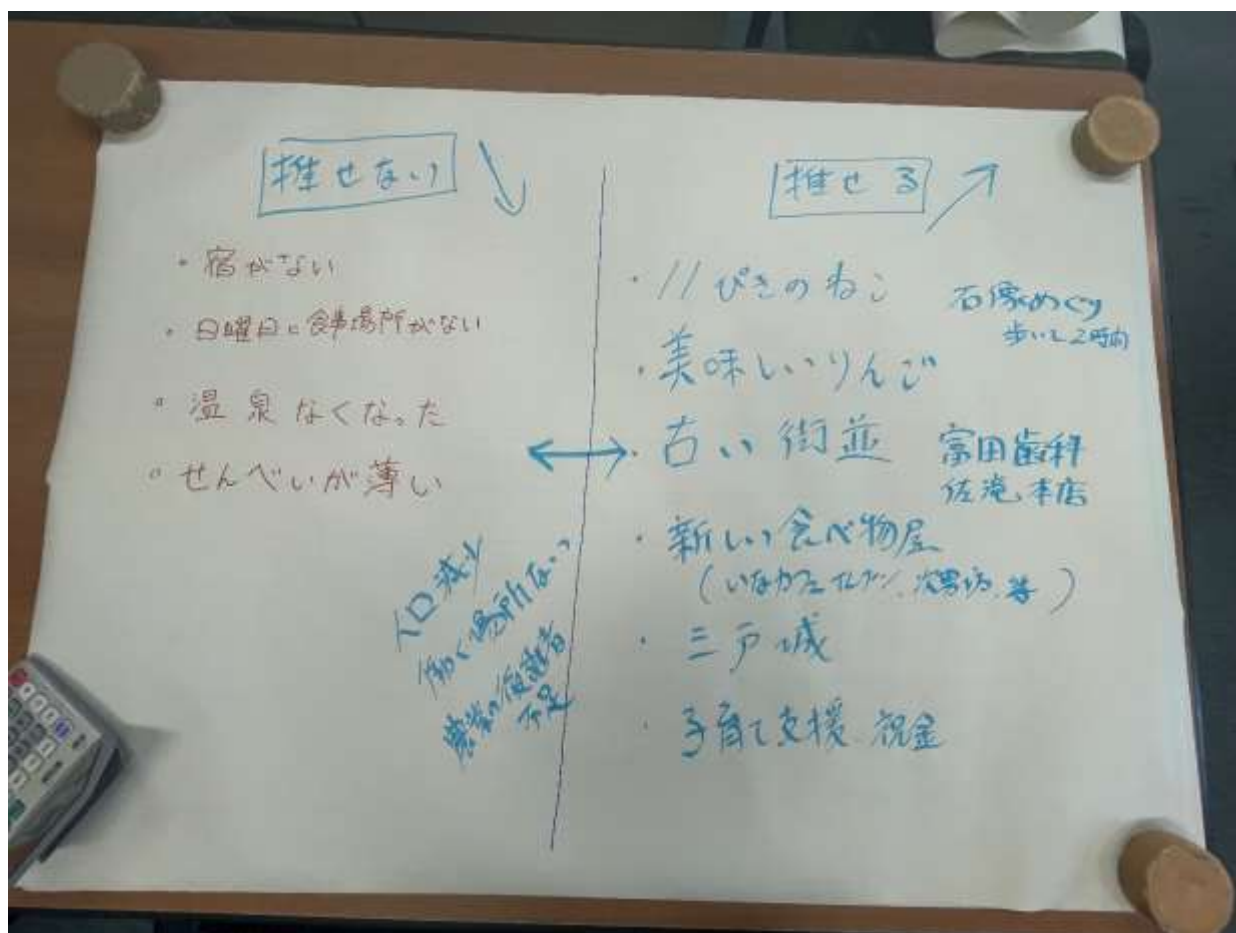 推せない
・宿がない
・日曜日に食事場所がない
・温泉なくなった
・せんべいが薄い
人口減少
働く場所ない
農業の後継者
不足
推せる
・11ぴきのねこ
石像めぐり
歩いて2時間
・美味しいりんご
・古い街並
富田歯科
佐滝本店
・新しい食べ物屋
(いなカフェ 次男坊 等)
・三戸城
・子育て支援 祝金